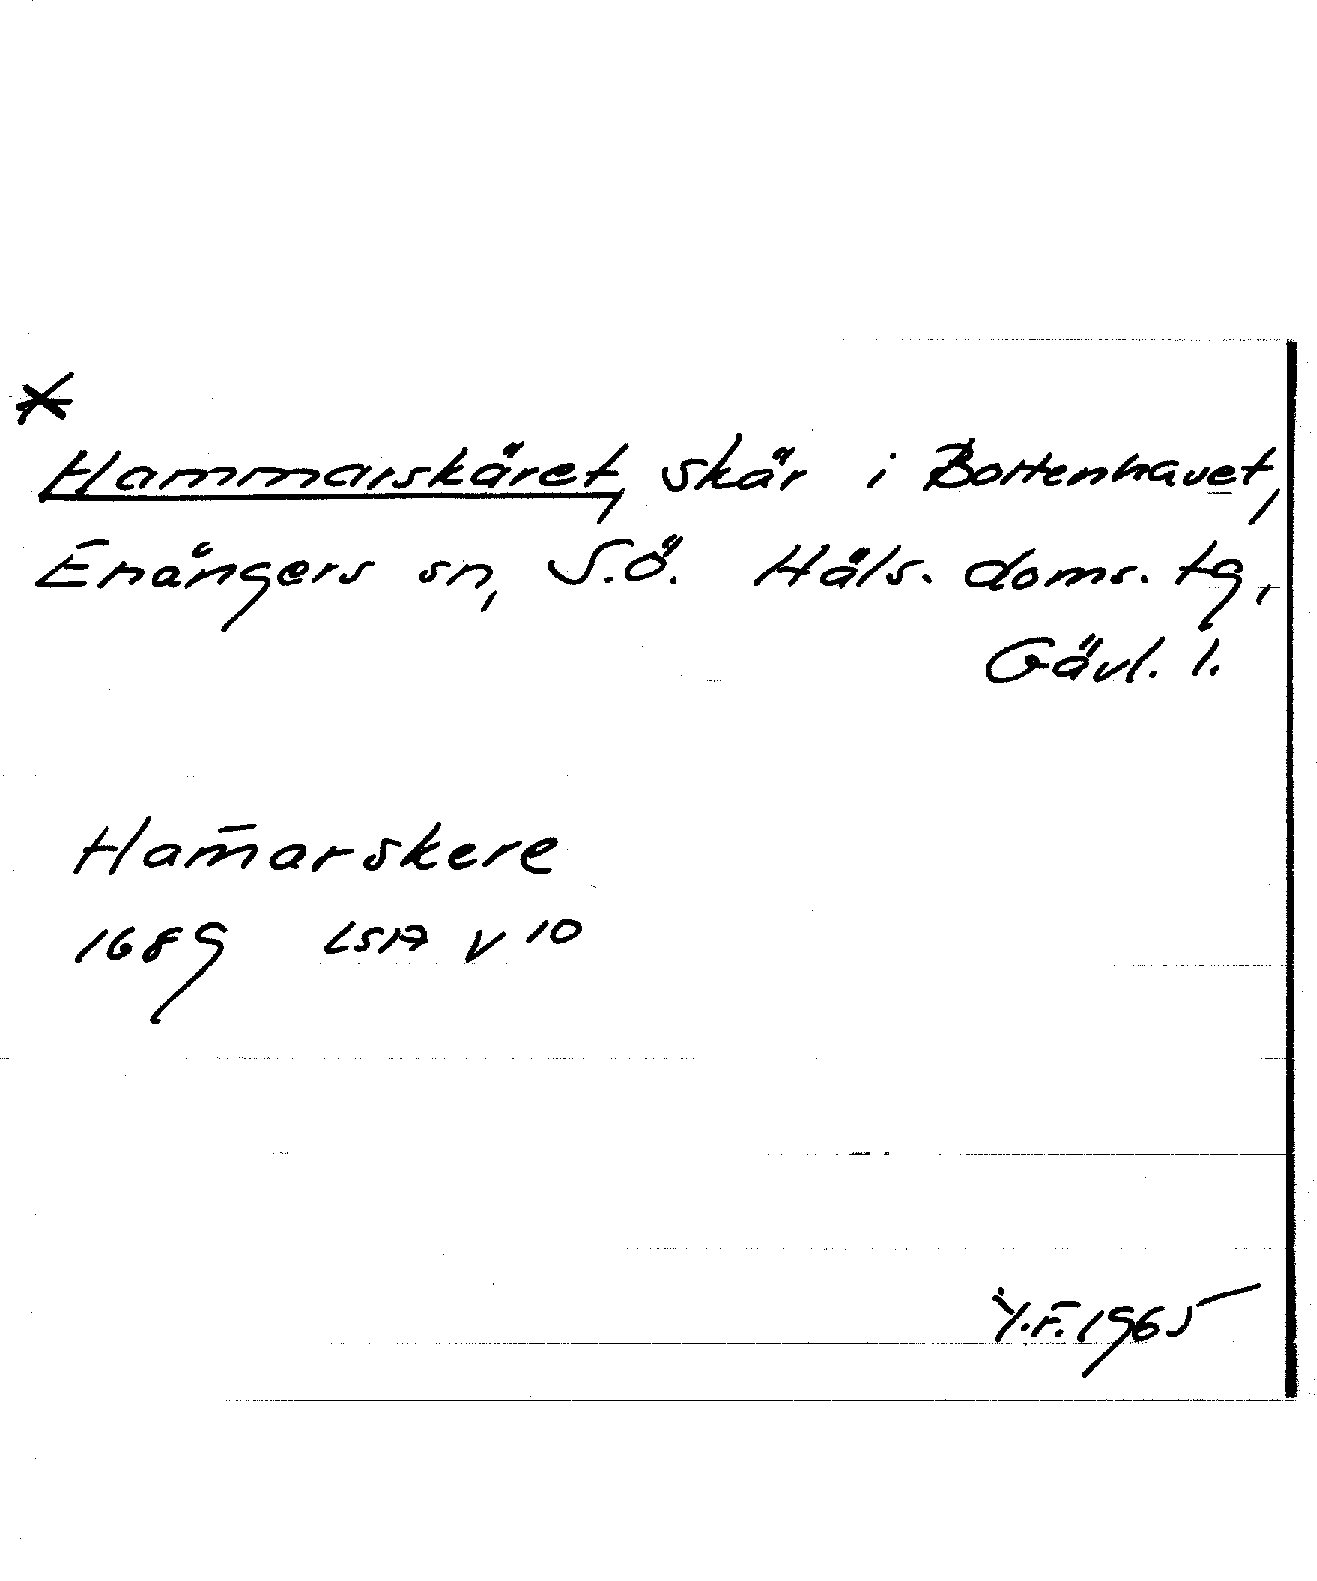 *
Hammarskäret, skär i Bottenhavet,
Enångers sn, S.Ö. Häls. doms. tg,
Gävl. l.
Ham̄arskere
1689 LSA V 10
Y.F. 1965